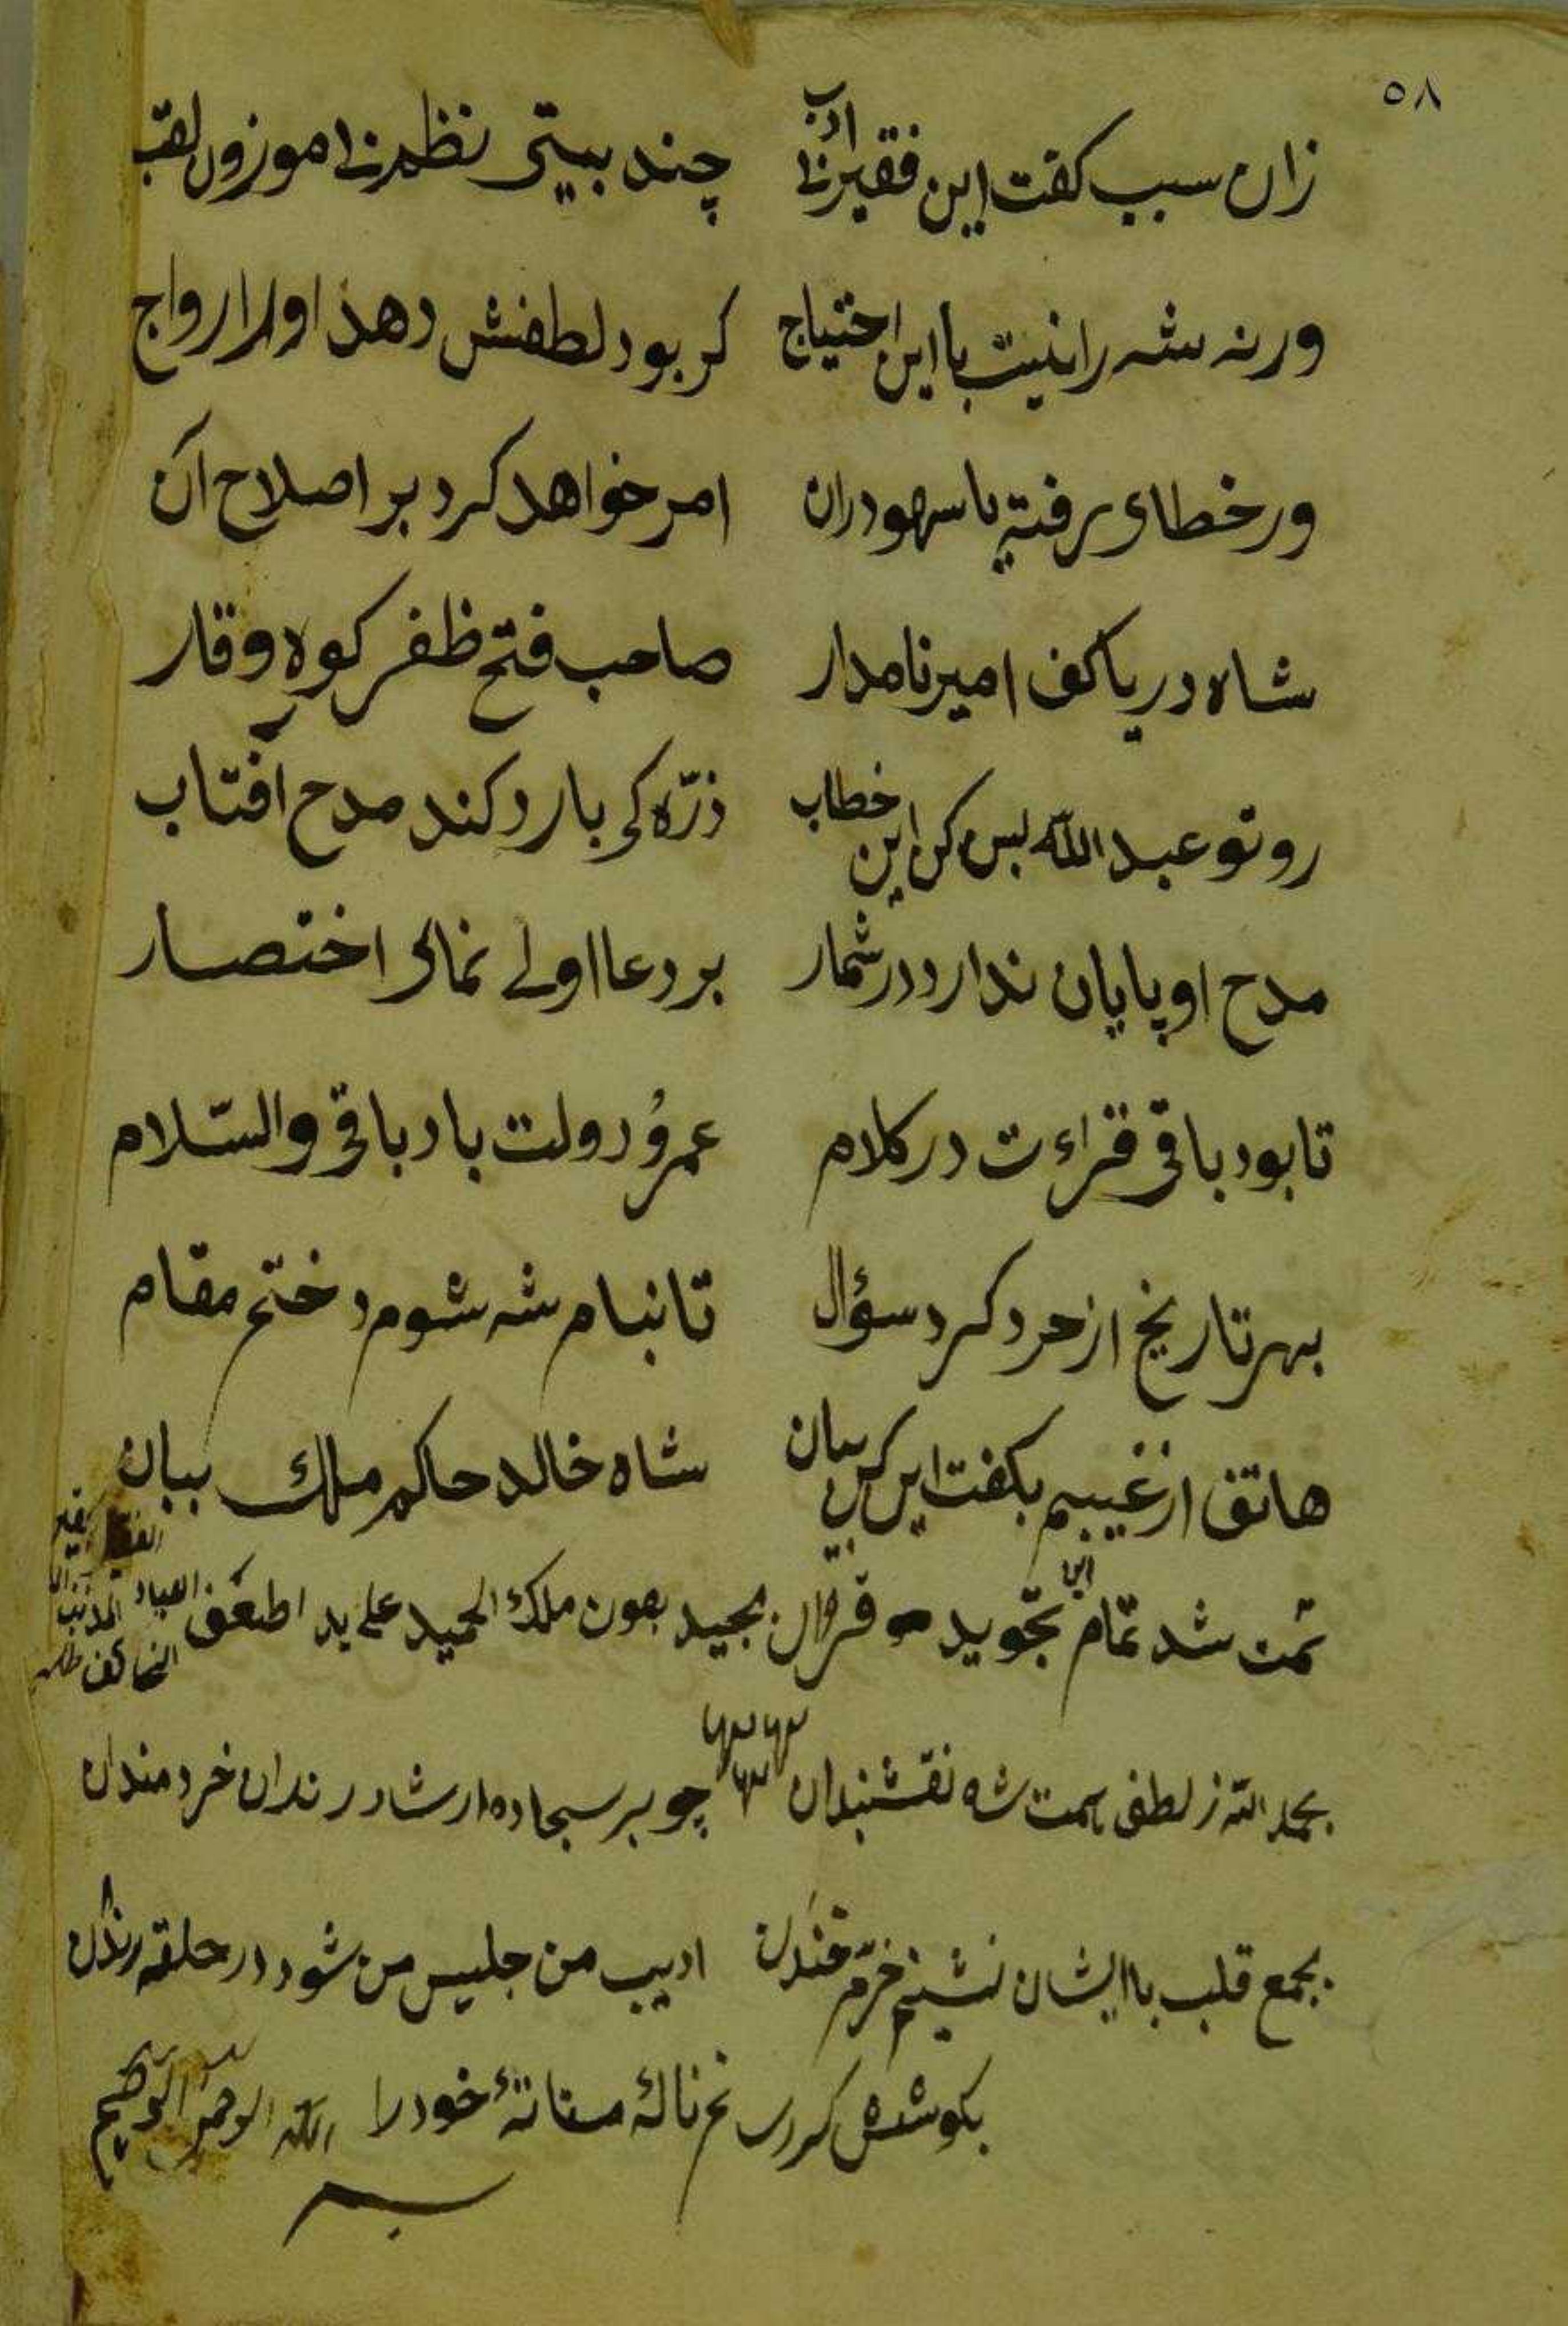 ٥٨
زان سبب کفت این فقیر بی ادب چند بیتی نظم بی موزون لقب
ورنه شه را نیست با این احتیاج کر بود لطفش دهد او را رواج
ور خطای رفته یا سهو دران امر خواهد کرد بر اصلاح آن
شاه دریا کف امیر نامدار صاحب فتح ظفر کوه وقار
رو تو عبد الله بس کن این خطاب ذرّه کی یارد کند مدح افتاب
مدح او پایان ندارد در شمار بر دعا اولی نمائی اختصار
تا بود باقی قراءت در کلام عمرُ دولت باد باقی والسّلام
بهر تاریخ از خرد کرد سؤال تا بنام شه شوم د ختم مقام
هاتف از غیبم بکفت این بیان شاه خالد حاکم ملك ببان
تمت شد تمام این تجوید قرآن مجید بعون ملك الحمید علی ید اضعف العباد المذنب
بحمد الله ز لطف همت شه نقشبندان چو بر سجاده ارشاد رندان خردمندان
بجمع قلب با ایشان نشینم خرّم خندان ادیب من جلیس من شود در حلقه رندان
بکوشش کر رسانم نالهٔ مستانهٔ خود را
بسم الله الرحمن الرحیم